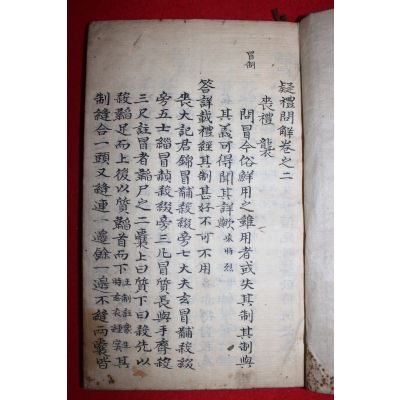 疑禮問解卷之二
喪禮 襲
冒制
問冒今俗鮮用之雖用者或失其制其制與
其義可得聞其詳歟 宋時烈
答詳載禮經其制甚好不可不用
喪大記君錦冒黼殺綴旁七大夫玄冒黼殺綴
旁五士緇冒赬殺綴旁三凡冒質長與手齊殺
三尺註冒者韜尸之二囊上曰質下曰殺先以
殺韜足而上後以質韜首而下 其
制縫合一頭又縫連一邊餘一邊不縫兩囊皆